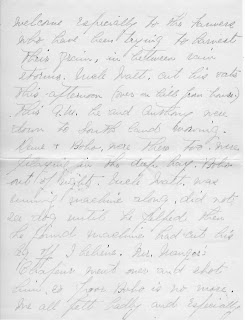 welcome especially to the farmers
who have been trying to harvest
their grain, in between rain
storms. Uncle Walt cut his oats
this afternoon (over on hill from house)
this A.M. he and Anthony were
down to South Lund mowing.
June & Hobo, were there too, were
playing in the deep hay. Hobo
out of sight. Uncle Walt was
running machine along, did not
see dog until he yelped then
he found machine had cut his
leg off I believe. Mr.
Chapin went over and shot
him, so poor Hobo is no more.
We all felt badly and especially